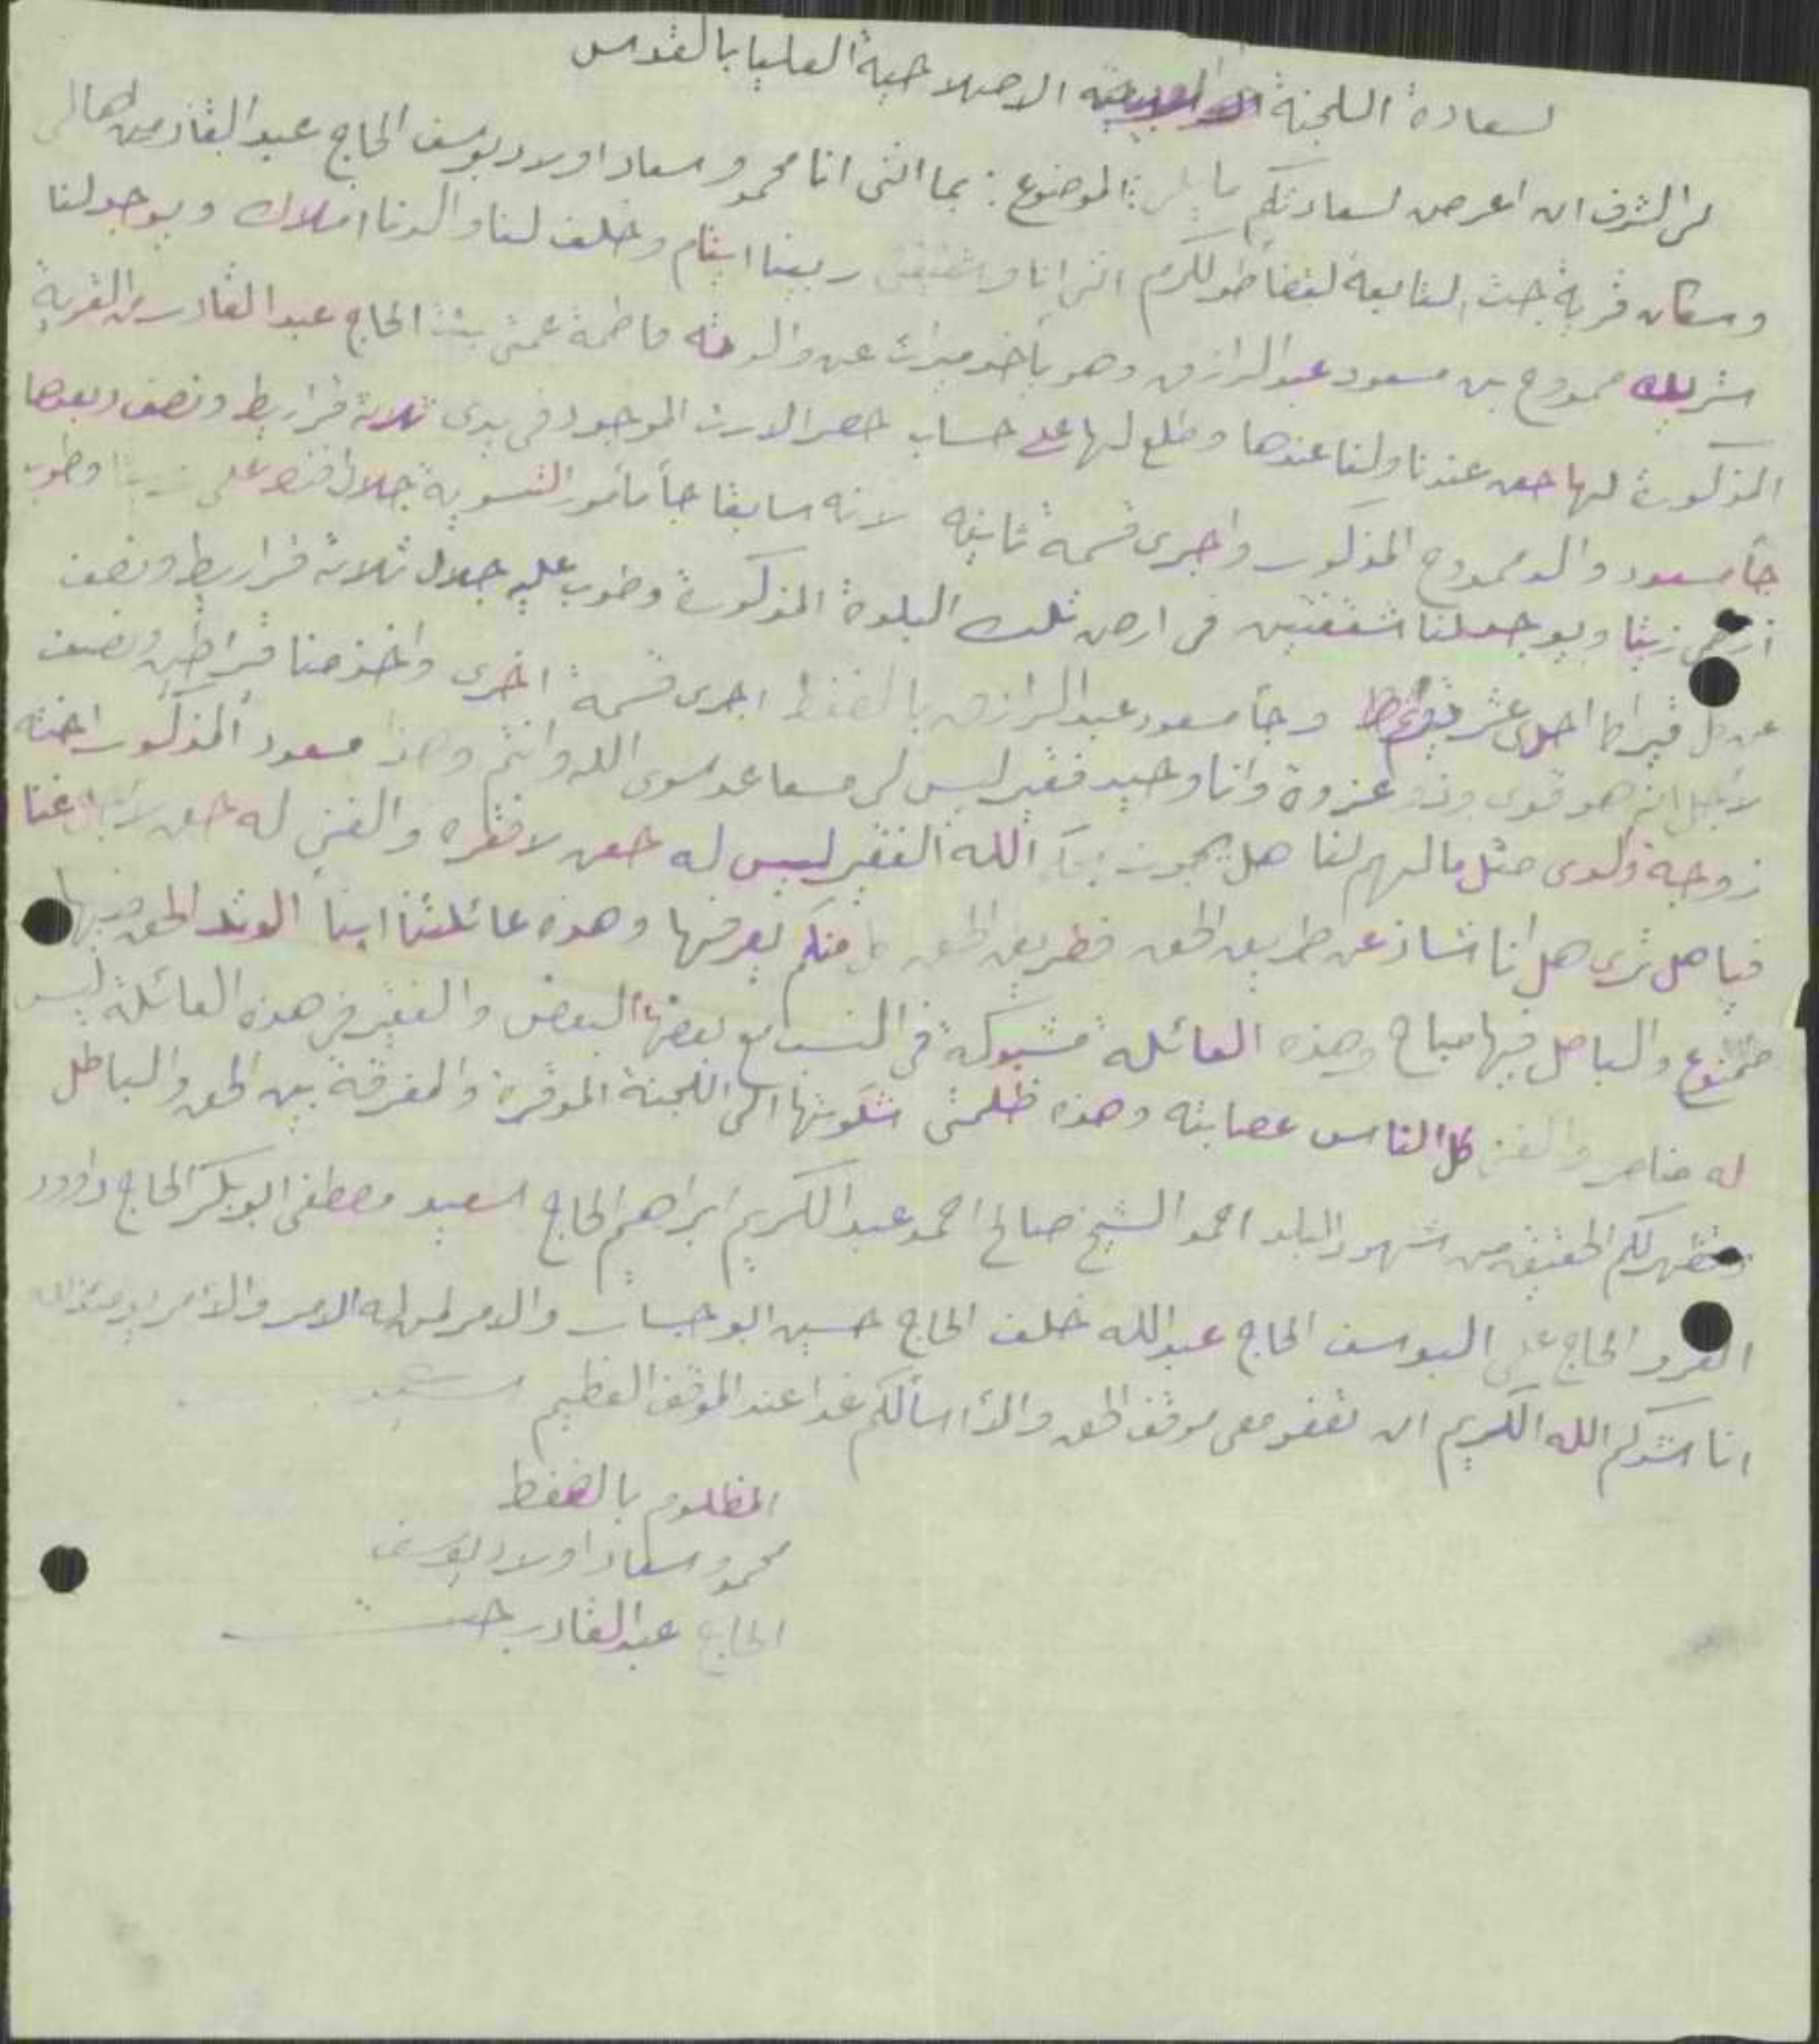 لسعادة اللجنة الاصلاحية العليا بالقدس
لي الشرف ان اعرض لسعادتكم ما يلي: الموضوع: بما انني انا محمد وسعاد اولاد يوسف الحاج عبد القادر من اهالي
وسكان قرية جيت التابعة لقضا طولكرم انني انا وشقيقتي ربينا ايتام وخلف لنا والدنا املاك ويوجد لنا
شريك ممدوح بن مسعود عبد الرازق وهو يأخذ ميراث عن والدته فاطمة عمتي بنت الحاج عبد القادر من القرية
المذكورة لها حق عندنا ولنا عندها وطلع لها على حساب حصر الارث الموجود في يدي ثلاثة قراريط ونصف وبعدها
جأ مسعود والد ممدوح المذكور واجرى قسمة ثانية لانه سابقا جأ مأمور التسوية جلال على زيتا وطوب
زيتا ويوجد لنا شقفتين في ارض تلك البلدة المذكورة وطوب عليه جلال ثلاثة قراريط ونصف
عن كل قيراط احدى عشر وجأ مسعود عبد الرازق بالضغط اجرى قسمة اخرى واخذ منا قيراطين ونصف
لأجل انه هو قوي وذو عزوة وانا وحيد فقير ليس لي مساعد سوى الله وانتم وهذا مسعود المذكور اخته
زوجة ولدي مثل ما لهم لنا هل يجوز الله الفقير ليس له حق لا فقره والغني له حق لأجل غنا
فيا هل ترى هل انا شاذ عن طريق الحق فطريق الحق كل منكم يعرفها وهذه عائلتنا الحق فيها
ممنوع والباطل فيها مباح وهذه العائله مشبوكة في النسب مع بعضها البعض والفقير في هذه العائلة ليس
له مناصر والغني كل الناس عصابته وهذه ظلمتي شكوتها الى اللجنة الموقرة والمفرقة بين الحق والباطل
لكم الحقيقة من شهود البلد احمد الشيخ صالح احمد عبد الكريم ابراهيم الحاج اسعيد مصطفى ابو بكر الحاج داوود
الحاج علي اليوسف الحاج عبد الله خلف الحاج حسين ابو والامر لمن له الامر والأمر يومئذ لله
اناشدكم الله الكريم ان تقفو معي موقف الحق والا اسألكم غدا عند الموقف العظيم
المظلوم بالضغط
محمد وسعاد اولاد يوسف
الحاج عبد القادر جيت